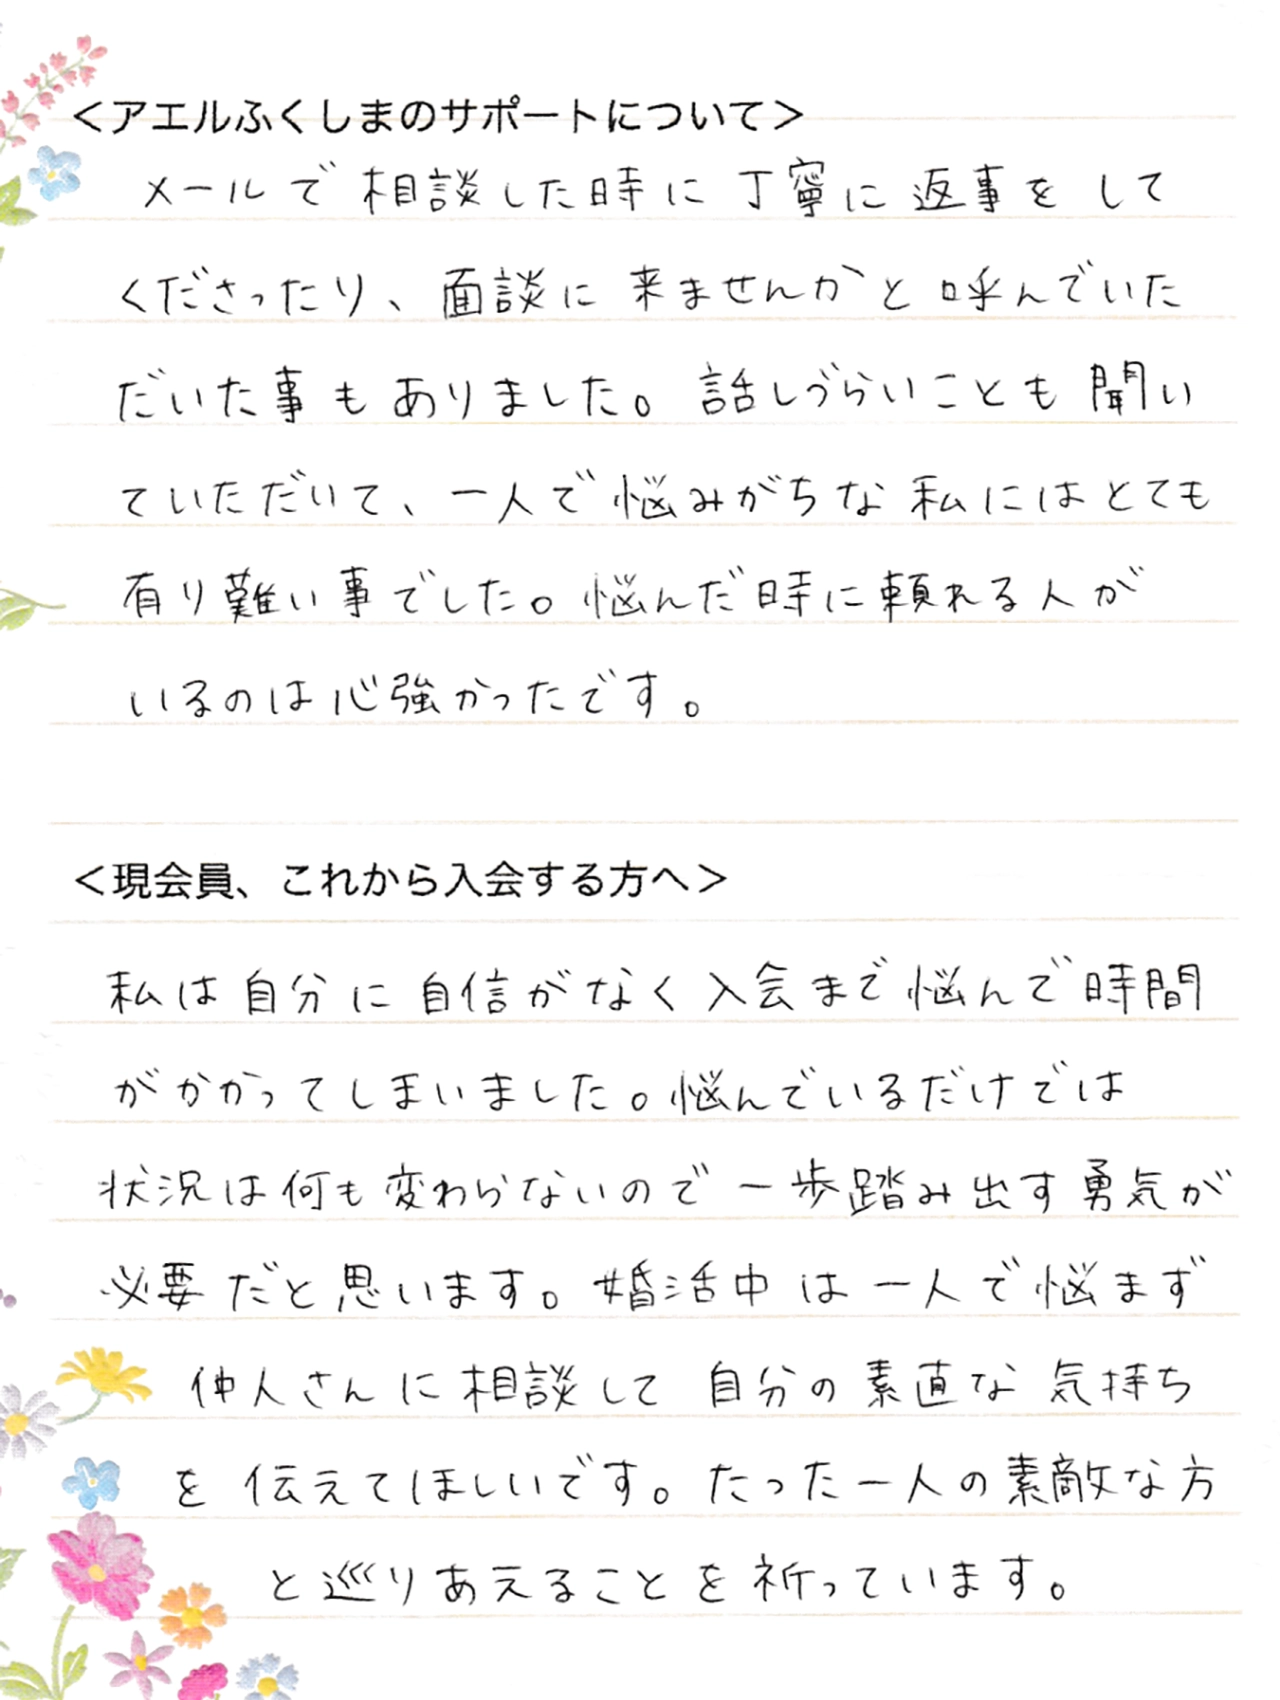 ＜アエルふくしまのサポートについて＞
メールで相談した時に丁寧に返事をして
くださったり、面談に来ませんかと呼んでいた
だいた事もありました。話しづらいことも聞い
ていただいて、一人で悩みがちな私にはとても
有り難い事でした。悩んだ時に頼れる人が
いるのは心強かったです。
＜現会員、これから入会する方へ＞
私は自分に自信がなく入会まで悩んで時間
がかかってしまいました。悩んでいるだけでは
状況は何も変わらないので一歩踏み出す勇気が
必要だと思います。婚活中は一人で悩まず
仲人さんに相談して自分の素直な気持ち
を伝えてほしいです。たった一人の素敵な方
と巡りあえることを祈っています。